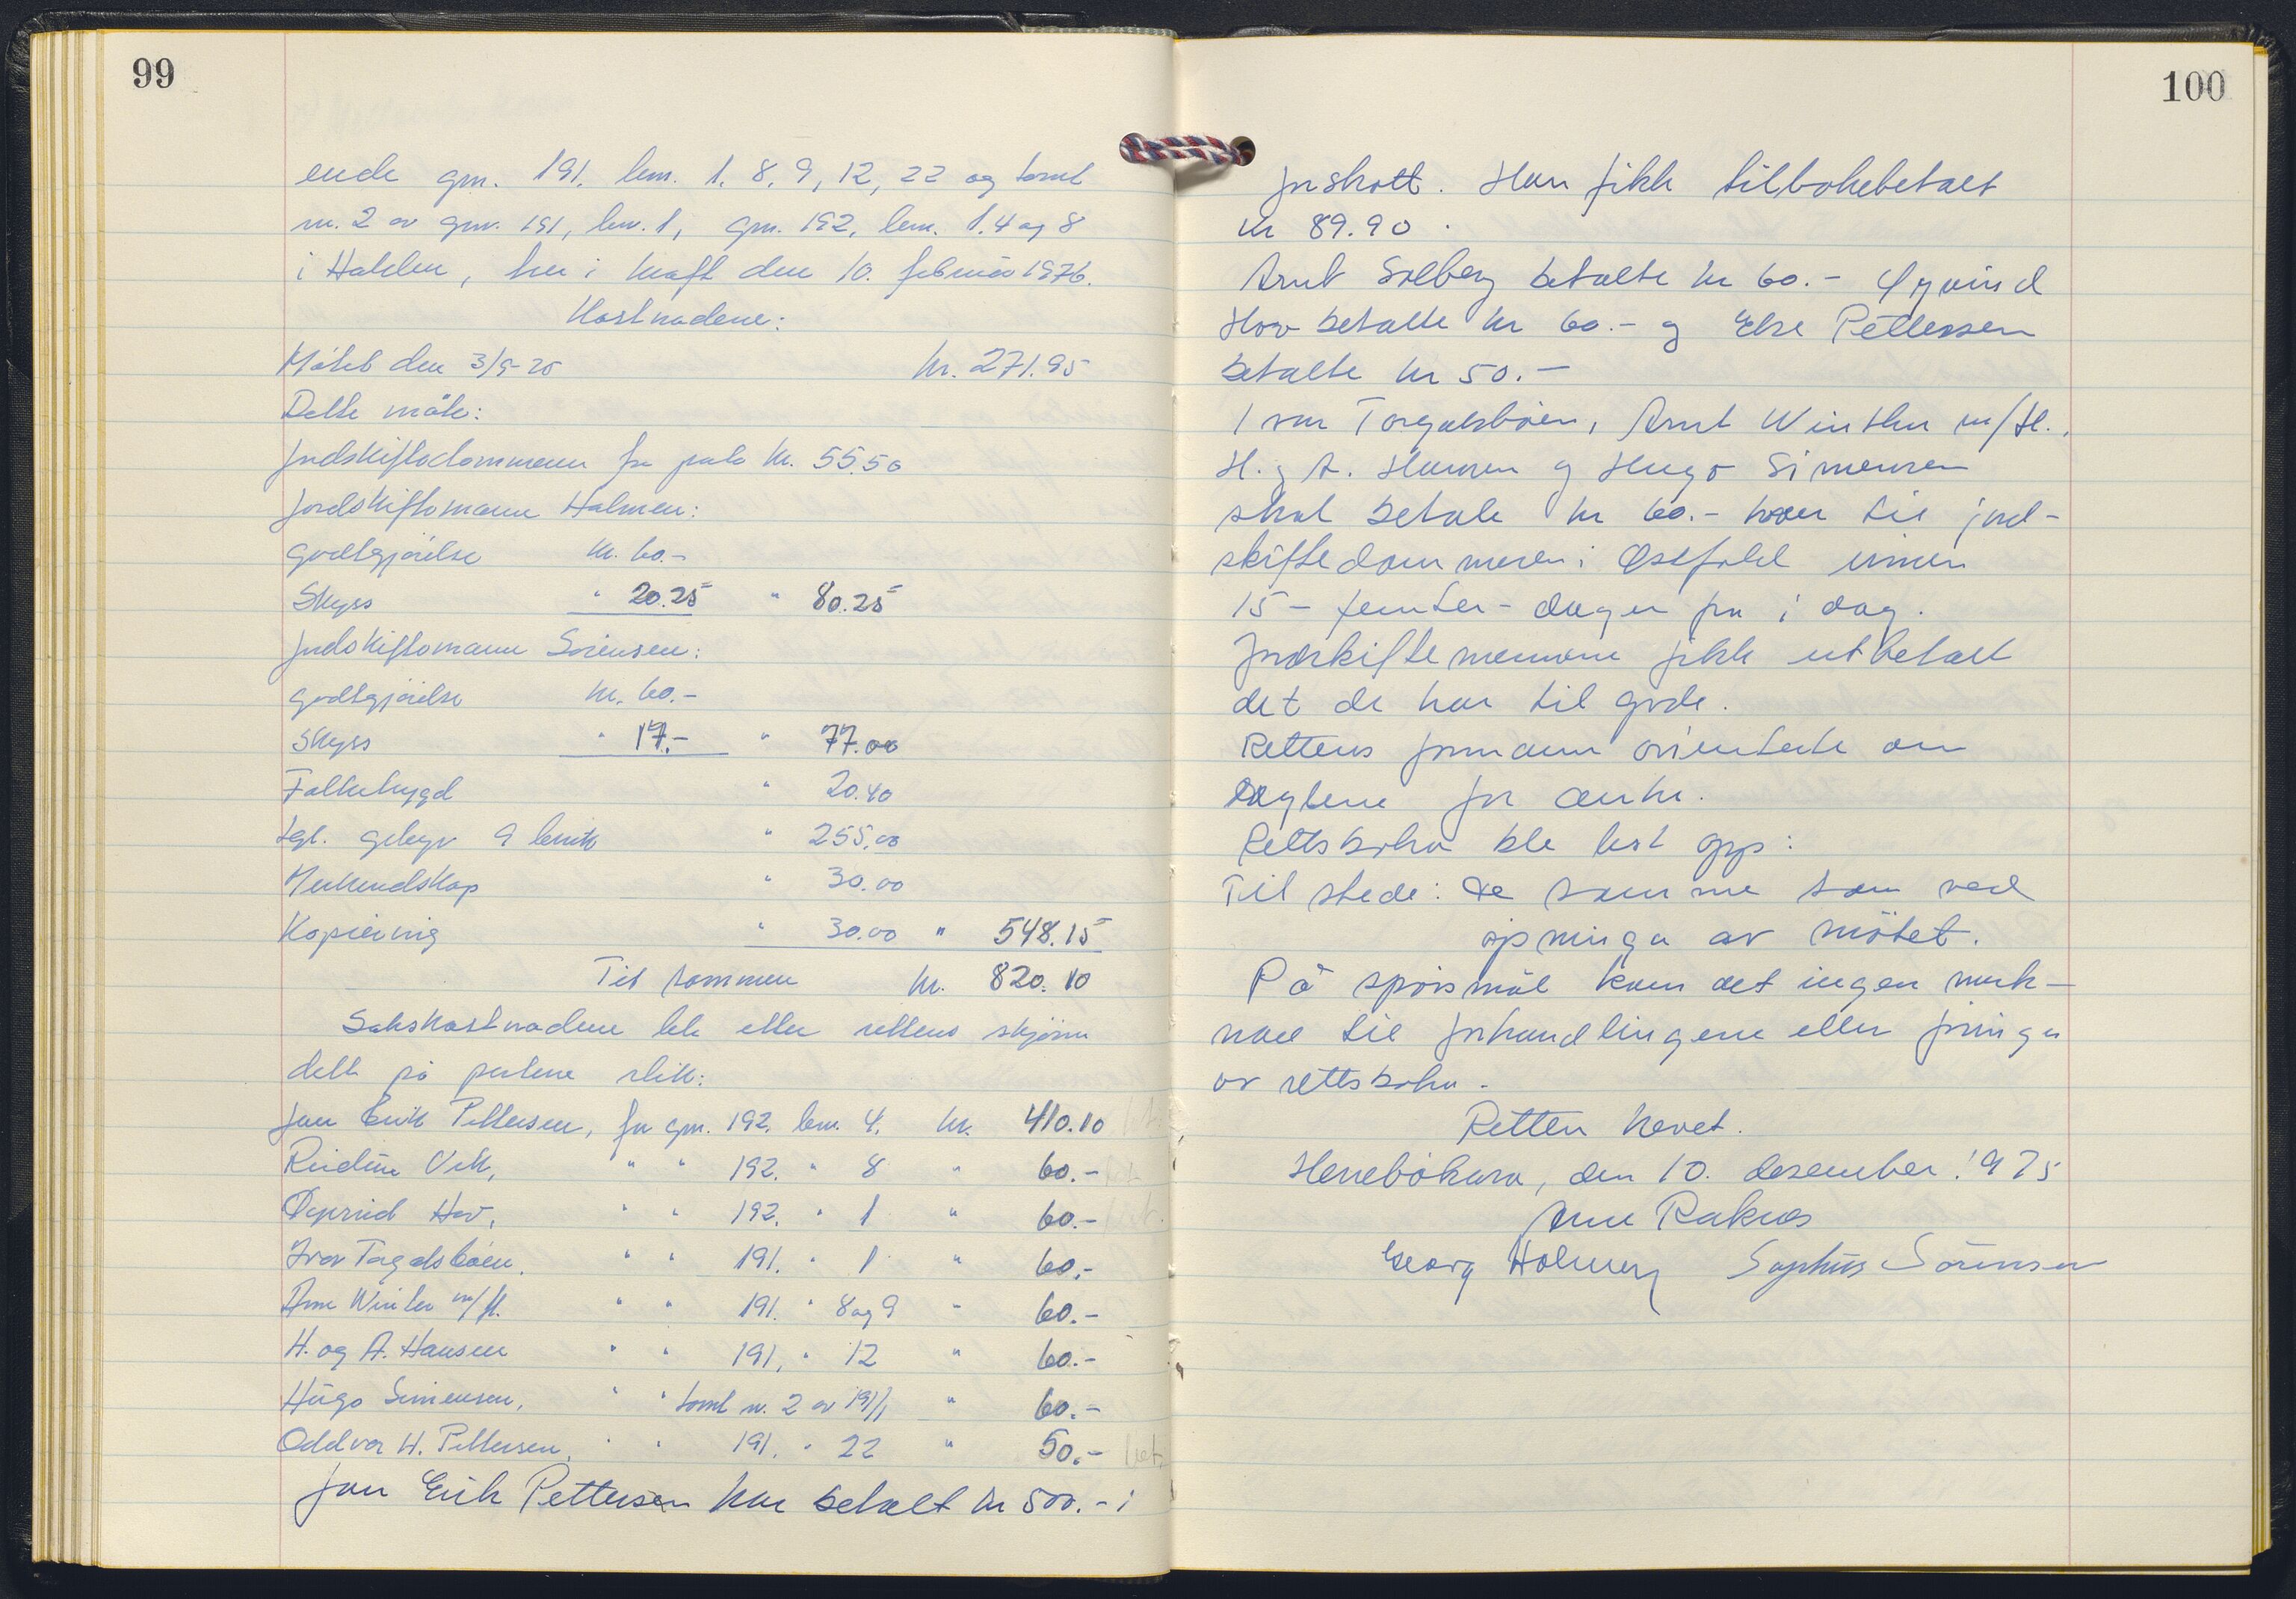 99
ende gnr. 191. bnr. 1. 8, 9, 12, 22 og tomt
nr. 2 av gnr. 191, bnr. 1, gnr. 192, bnr. 1. 4 og 8
i Halden, trer i kraft den 10. februar 1976.
Kostnadene:
Møtet den 3/9-75 kr. 271.95
Dette møte:
Jordskiftedommeren for porto kr. 55.50
Jordskiftemann Holmen:
godtgjørelse kr. 60.-
Skyss " 20.25 " 80.25
Jordskiftemann Sørensen:
godtgjørelse kr. 60.-
Skyss " 17.- " 77.00
Folketrygd " 20.40
tgl. gebyr 9 bruk " 255.00
Merkundskap " 30.00
Kopiering " 30.00 " 548.15
Til sammen kr. 820.10
Sakskostnadene ble etter rettens skjønn
delt på partene slik:
Jan Erik Pettersen, for gnr. 192. bnr. 4. kr. 410.10
Reidun Vik, " " 192. " 8 " 60.-
Øyvind Hov, " " 192. " 1 " 60.-
Ivar Torgalsbøen. " " 191. " 1 " 60.-
Arne Winter m/fl. " " 191. " 8 og 9 " 60.-
H. og A. Hansen " " 191. " 12 " 60.-
Hugo Simensen, " " tomt nr. 2 av 191/1 " 60.-
Oddvar H. Pettersen, " " 191. " 22 " 50.- bet.
Jan Erik Pettersen har betalt kr 500.- i
100
forskott. Han fikk tilbakebetalt
kr 89.90.
Arnt Solberg betalte kr 60.- Øyvind
Hov betalte kr 60.- og Else Pettersen
betalte kr 50.-
Ivar Torgalsbøen, Arnt Winther m/fl.,
H. og A. Hansen og Hugo Simensen
skal betale kr 60.- hver til jord-
skiftedommeren i Østfold innen
15 - femten - dager fra i dag.
Jordskiftemennene fikk utbetalt
det de har til gode.
Rettens formann orienterte om
reglene for anke.
Rettsboka ble lest opp:
Til stede: De samme som ved
åpninga av møtet.
På spørsmål kom det ingen merk-
nad til forhandlingene eller føringa
av rettsboka.
Retten hevet.
Herrebøkara, den 10. desember 1975
Arne Raknes
Georg Holmen Sophus Sørensen